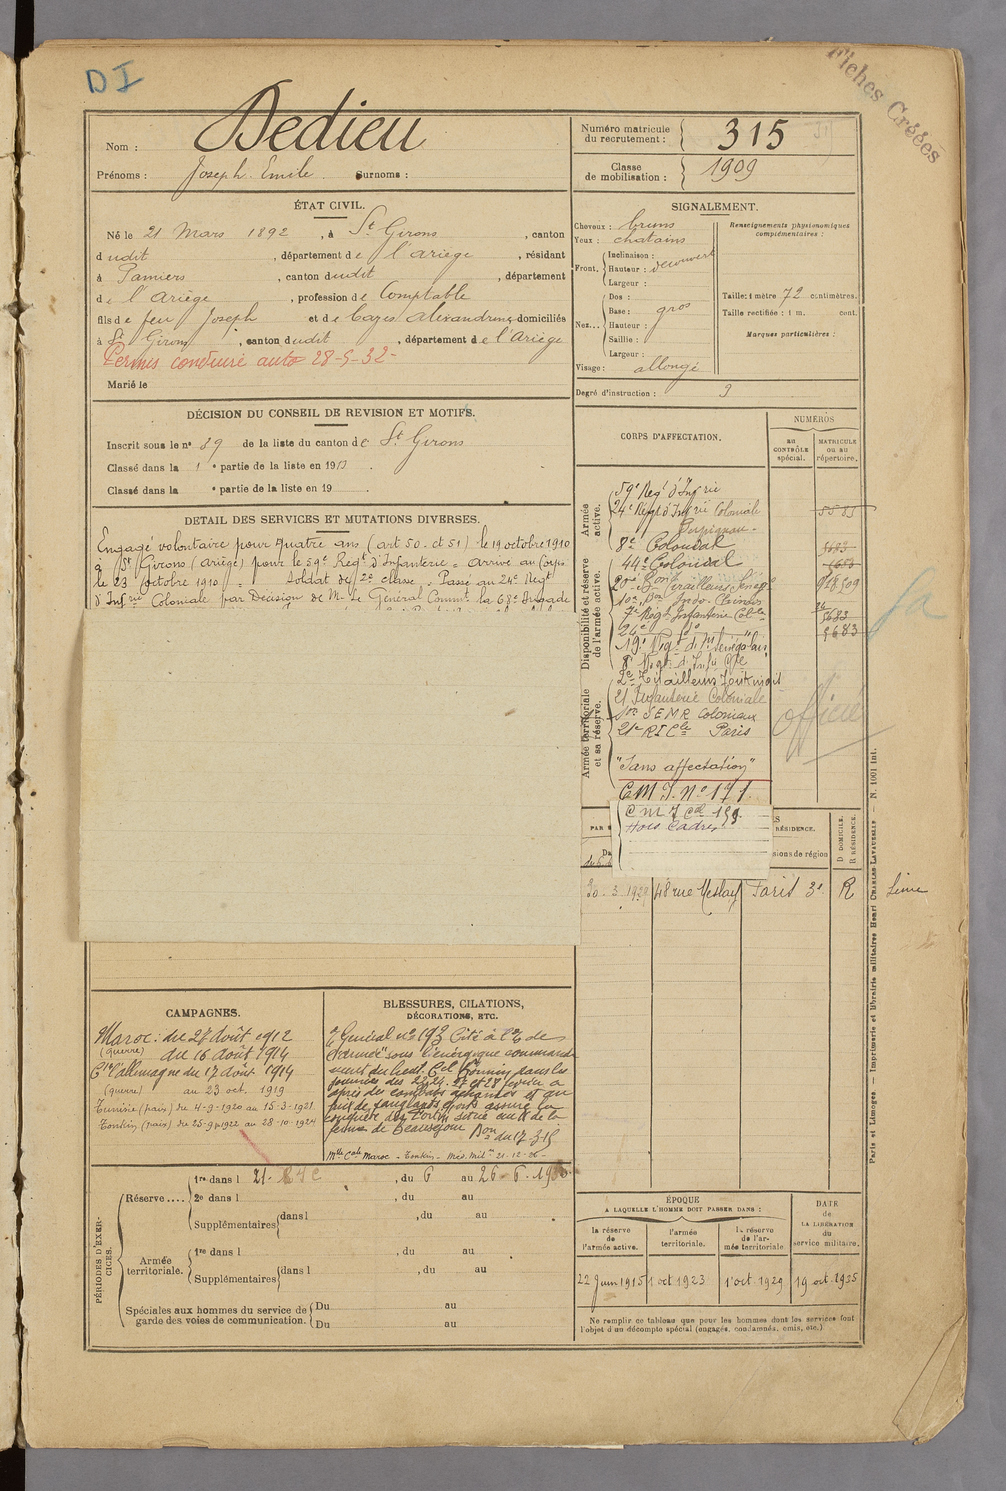 DI
Fiches Créées
Nom : Dedieu
Prénoms : Joseph Emile Surnoms :
Numéro matricule du recrutement : 315
Classe de mobilisation : 1909
ÉTAT CIVIL.
Né le 21 Mars 1892, à St Girons, canton
dudit, département de l'ariège, résidant
à Pamiers, canton dudit, département
de l'Ariège, profession de Comptable
fils de feu Joseph et de Cazes Alexandrine domiciliés
à St Girons, canton dudit, département de l'Ariège
Permis conduire auto 28-5-32-
Marié le
SIGNALEMENT.
Cheveux : bruns
Yeux : chatains
Front, Inclinaison :
Hauteur : découvert
Largeur :
Nez... Dos :
Base : gros
Hauteur :
Saillie :
Largeur :
Visage : allongé
Renseignements physionomiques complémentaires :
Taille : 1 mètre 72 centimètres.
Taille rectifiée : 1 m. cent.
Marques particulières :
Degré d'instruction : 3
DÉCISION DU CONSEIL DE REVISION ET MOTIFS.
Inscrit sous le n° 89 de la liste du canton de St Girons
Classé dans la 1e partie de la liste en 1913.
Classé dans la e partie de la liste en 19 .
DETAIL DES SERVICES ET MUTATIONS DIVERSES.
Engagé volontaire pour quatre ans (art 50 et 51) le 19 octobre 1910
à St Girons (ariège) pour le 59e Regt d'Infanterie = arrivé au Corps
le 23 octobre 1910 = Soldat de 2e classe. Passé au 24e Regt
d'Infrie Coloniale par Décision de M. le Général Commt la 67e Brigade
CORPS D'AFFECTATION.
NUMÉROS
au CONTRÔLE spécial.
MATRICULE ou au répertoire.
Armée active.
59e Regt d'Infrie
24e Regt d'Infrie Coloniale
Perpignan.
Disponibilité et réserve de l'armée active.
8e Colonial
44e Colonial
Indo-Chinois
7e Regt Infanterie Colle
5683
8e Regt d'Infie Cle
Armée territoriale et sa réserve.
21 Infanterie Coloniale
SEMR Coloniaux
21e RICle Paris
"Sans affectation"
CMI. N° 171.
CMI Cal 159.
Hors Cadres
officier
RÉSIDENCE.
D DOMICILE.
R RÉSIDENCE.
20-3-1929 48 rue Meslay Paris 3e R Seine
CAMPAGNES.
Maroc : du 27 Août 1912
(guerre) au 16 Août 1914
Ct l'allemagne du 17 Août 1914
(guerre) au 23 oct. 1919
Tunisie (paix) du 4-9-1920 au 15-3-1921
Tonkin (paix) du 25-9-1922 au 28-10-1924
BLESSURES, CITATIONS,
DÉCORATIONS, ETC.
Général n° 193 Cité à l'O de
d'armée "sous l'énergique commande
ment du lieut. Cel dans les
journées des 23, 24, 27 et 28 février a
après des combats acharnés et au
prix de sanglants efforts assuré la
conquête du Fortin situé au N de la
ferme de Beauséjour Bon du 17-3-15
Mlle Cale Maroc - Tonkin - Méd. Milre 21-12-26-
PÉRIODES D'EXERCICES.
Réserve.... 1re dans l 21 , du 6 au 26-6-1930
2e dans l , du au
Supplémentaires dans l , du au
Armée territoriale. 1re dans l , du au
Supplémentaires dans l , du au
Spéciales aux hommes du service de garde des voies de communication. Du au
Du au
ÉPOQUE
A LAQUELLE L'HOMME DOIT PASSER DANS :
la réserve de l'armée active.
l'armée territoriale.
la réserve de l'armée territoriale
DATE de LA LIBÉRATION du service militaire.
22 Juin 1915 1 oct 1923 1 oct. 1929 19 oct. 1935
Ne remplir ce tableau que pour les hommes dont les services font
l'objet d'un décompte spécial (engagés, condamnés, omis, etc.)
Paris et Limoges. — Imprimerie et librairie militaires Henri CHARLES-LAVAUZELLE. — N. 1001 Int.